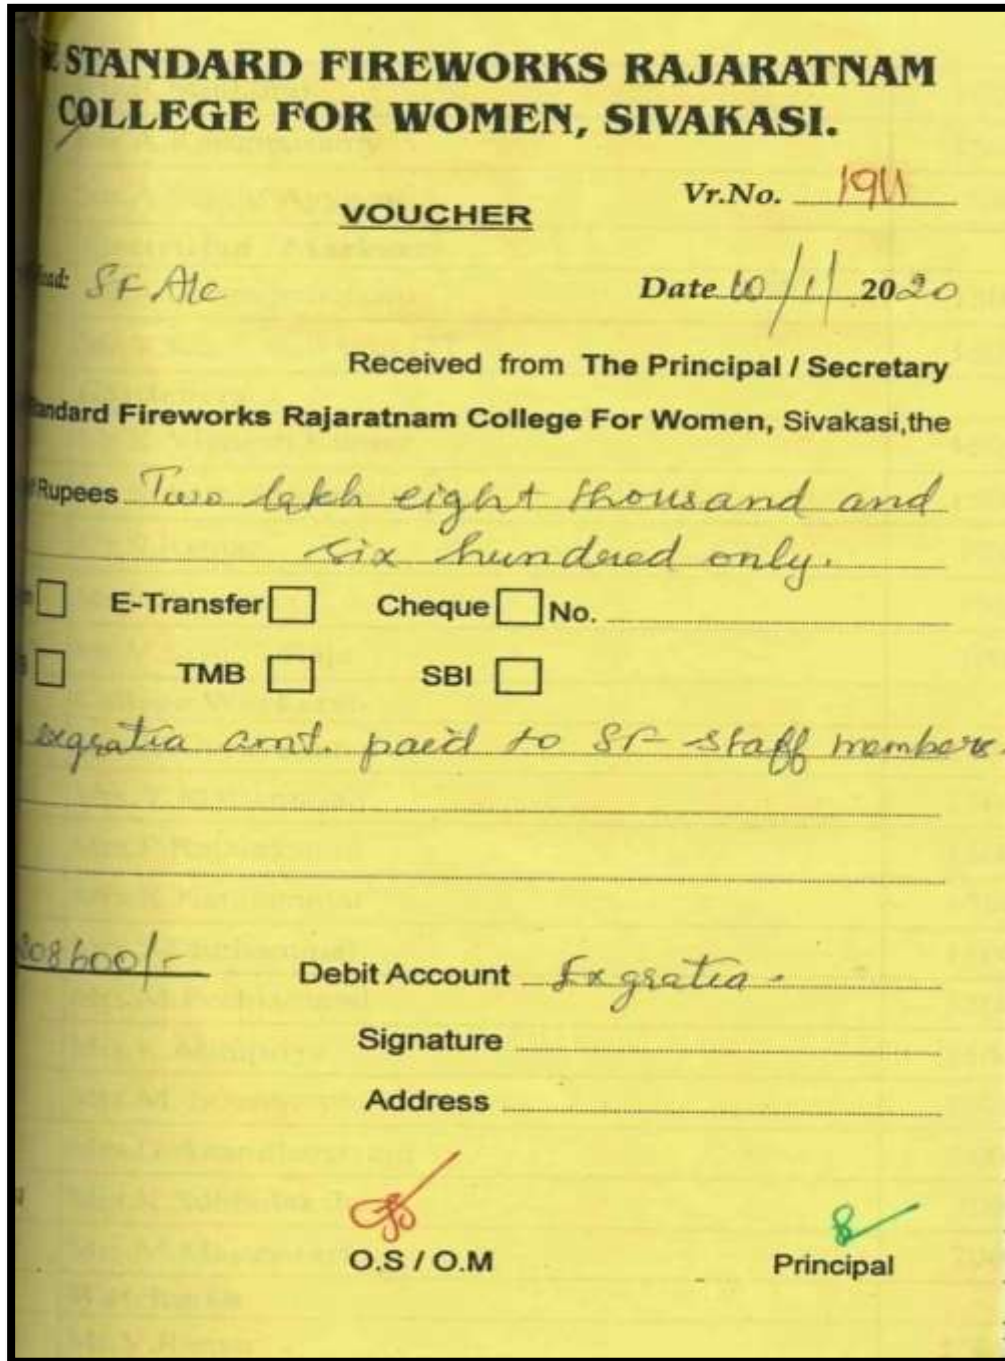 E STANDARD FIREWORKS RAJARATNAM
COLLEGE FOR WOMEN, SIVAKASI.
Vr.No. 1911
VOUCHER
SF A/c
Date 10/1/2020
Received from The Principal / Secretary
andard Fireworks Rajaratnam College For Women, Sivakasi,the
Rupees Two lakh eight thousand and
six hundred only.
E-Transfer Cheque No.
TMB SBI
exgratia amt. paid to SF staff members.
208600/-
Debit Account Exgratia.
Signature
Address
O.S / O.M Principal